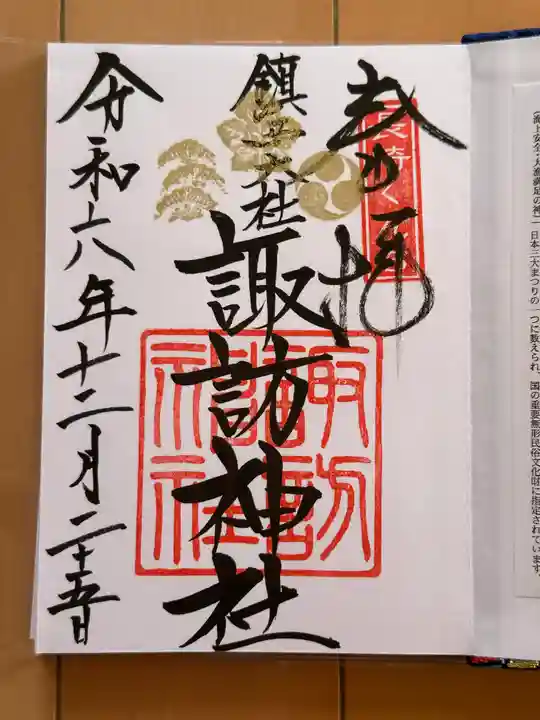 (海上安全・大漁満足の神)
日本三大まつりの一つに数えられ、国の重要無形民俗文化財に指定されています。
奉拝
長崎くんち
鎮西大社
諏訪神社
諏訪神社
令和六年十二月二十五日